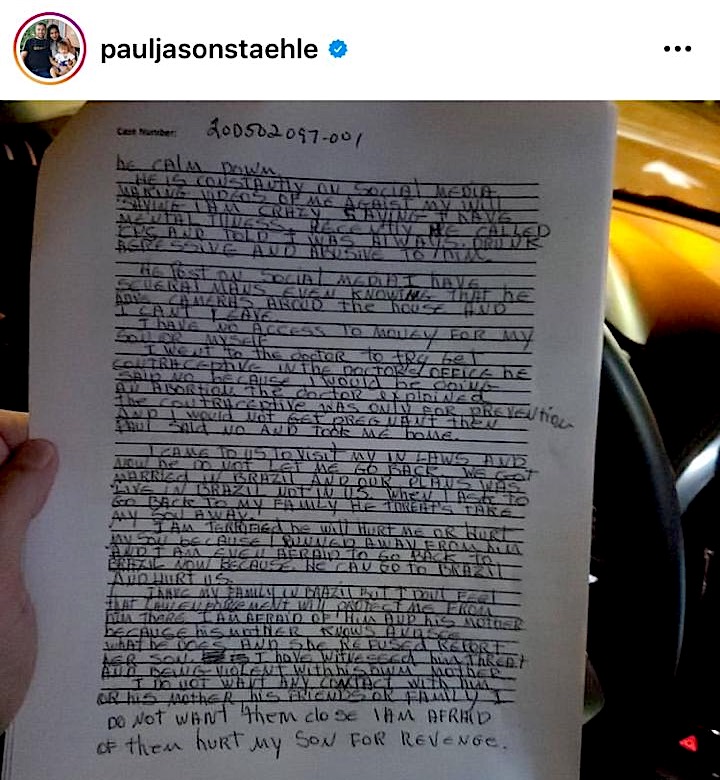 pauljasonstaehle
Case Number: 200502097-001
be CALM DOWN.
HE IS CONSTANTLY ON SOCIAL MEDIA
MAKING VIDEOS OF ME AGAIST MY WILL
SAYING I AM CRAZY SAYING I HAVE
MENTAL ILLNESS. RECENTLY HE CALLED
AND TOLD I WAS ALWAYS DRUNK
AGRESSIVE AND ABUSIVE TO HIM.
HE POST ON SOCIAL MEDIA I HAVE
SEVERAL MANS EVEN KNOWING THAT he
HAVE CAMERAS AROUD the house AND
I CAN'T LEAVE.
I HAVE NO ACCESS TO MONEY FOR MY
SON OR MYSELF
I WENT to the doctor to try get
CONTRACEPTIVE IN the DOCTOR'S OFFICE he
SAID NO because I would be doing
AN ABORTION the doctor explained
the CONTRACEPTIVE WAS ONLY FOR PREVENTION
AND I would NOT GET PREGNANT then
PAUL SAID NO AND TOOK ME home.
I CAME TO US TO VISIT MY IN LAWS AND
NOW he DO NOT LET ME GO BACK. WE GOT
MARRIED IN BRAZIL AND OUR PLANS WAS
LIVE IN BRAZIL NOT IN US. WHEN I ASK TO
GO BACK TO MY FAMILY HE THREAT'S TAKE
MY SON AWAY.
I AM TERRIFIED he will HURT ME OR HURT
MY SON because I RUNNED AWAY FROM HIM
AND I AM EVEN AFRAID to GO BACK to
BRAZIL NOW BECAUSE HE CAN GO to BRAZIL
AND HURT US.
I HAVE MY FAMILY IN BRAZIL BUT I DON'T FEEL
that LAW ENFORCEMENT WILL PROTECT ME FROM
HIM THERE. I AM AFRAID OF HIM AND his MOTHER
because his mother KNOWS
what he DOES AND she REFUSED REPORT
HER SON I HAVE WITNESSED him THREAT
AND BEING VIOLENT WITH his OWN MOTHER
I DO NOT WANT ANY CONTACT WITH him
OR his Mother his FRIENDS OR FAMILY I
DO NOT WANT them close I AM AFRAID
OF them HURT MY SON FOR REVENGE.